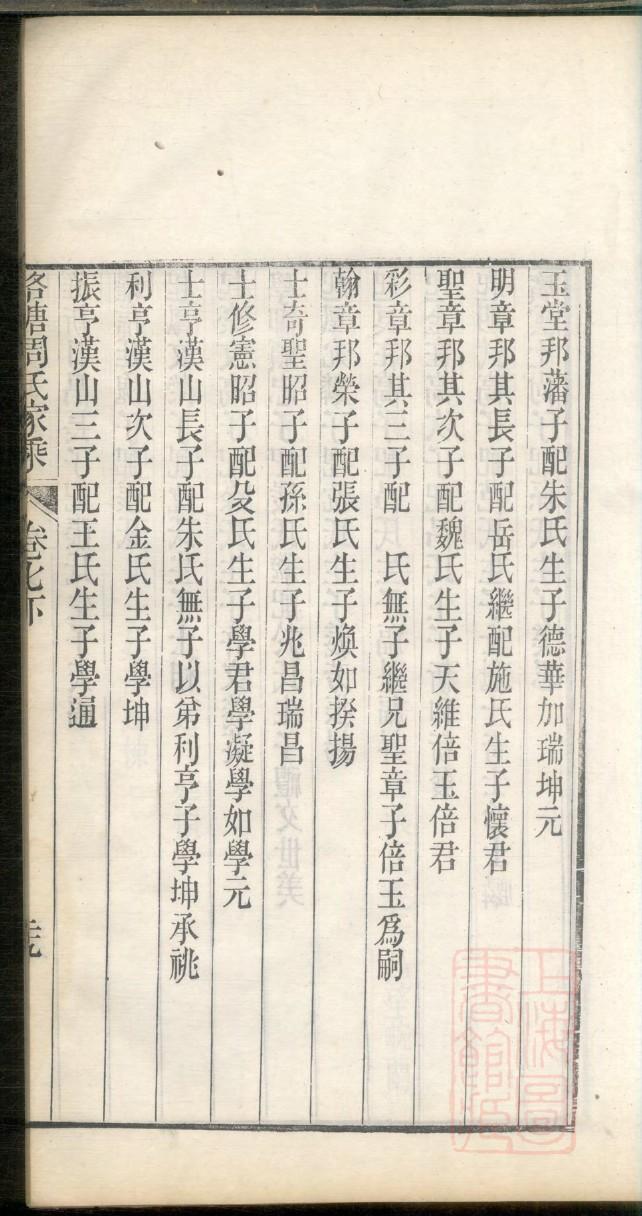 玉堂邦藩子配朱氏生子德華加瑞坤元
明章邦其長子配岳氏繼配施氏生子懷君
聖章邦其次子配魏氏生子天維倍玉倍君
彩章邦其三子配　氏無子繼兄聖章子倍玉爲嗣
翰章邦榮子配張氏生子煥如揆揚
士奇聖昭子配孫氏生子兆昌瑞昌
士修憲昭子配殳氏生子學君學凝學如學元
士亨漢山長子配朱氏無子以弟利亨子學坤承祧
利亨漢山次子配金氏生子學坤
振亨漢山三子配王氏生子學通
塘周氏家乘
卷
上海圖書館藏